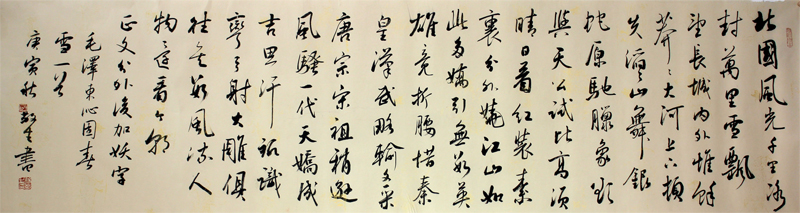 北國風光千里冰
封萬里雪飄
望長城內外惟餘
莽〻大河上下頓
失滔〻山舞銀
蛇原馳臘象欲
與天公試比高須
晴日看紅裝素
裹分外嬈江山如
此多嬌引無數英
雄競折腰惜秦
皇漢武略輸文采
唐宗宋祖稍遜
風騷一代天驕成
吉思汗祗識
彎弓射大雕俱
往矣數風流人
物還看今朝
正文分外後加妖字
毛澤東沁園春
雪一首
庚寅秋書